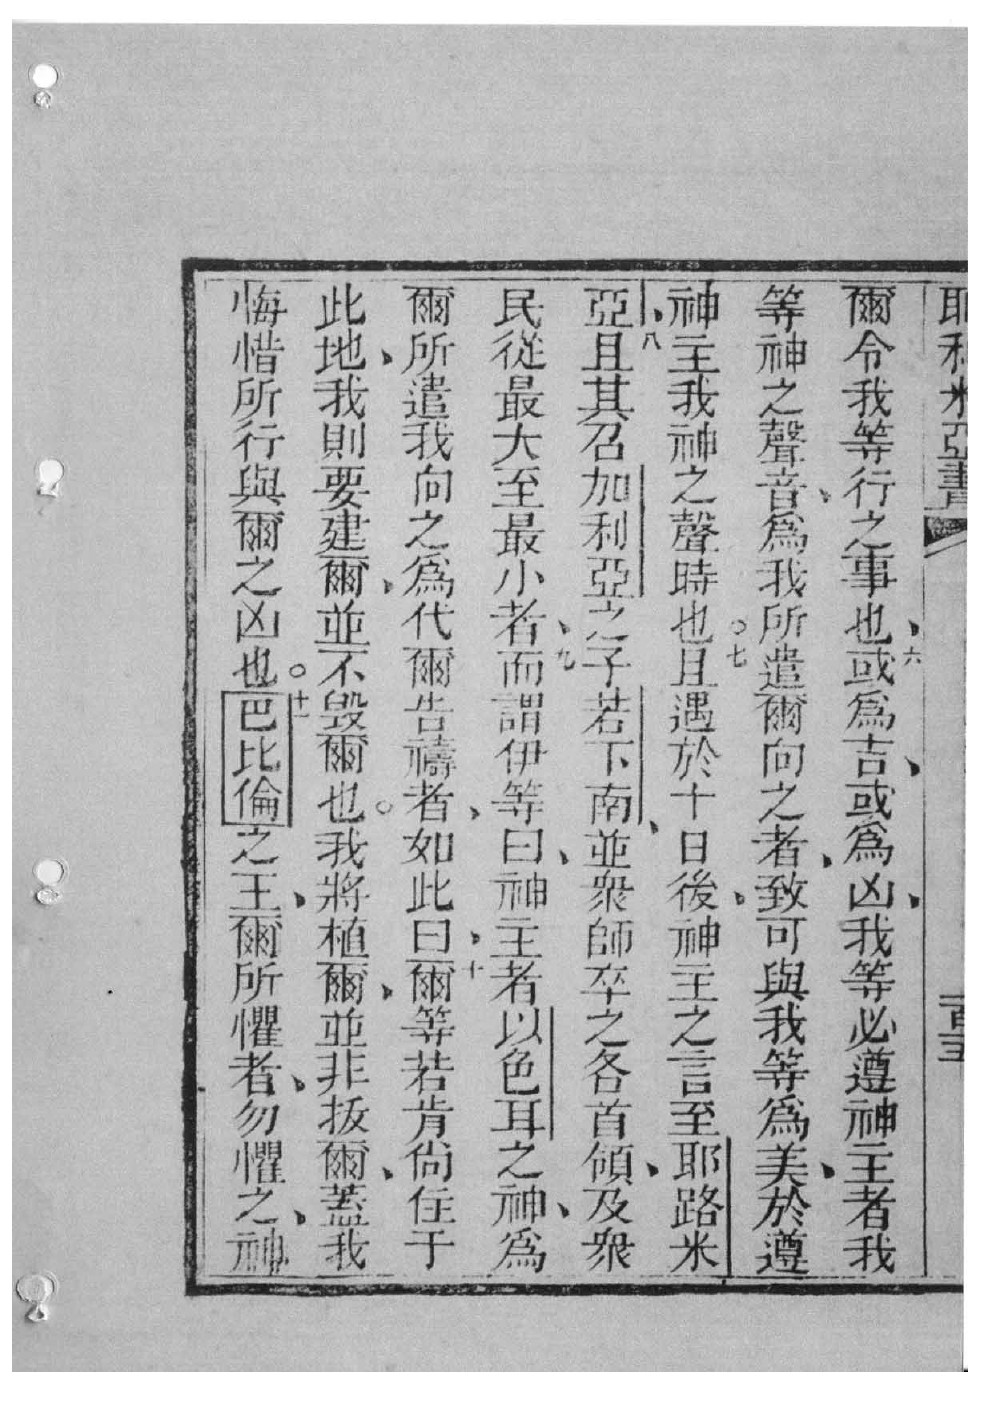 耶利米亞書 一百五
爾令我等行之事也、六或為吉、或為凶、我等必遵神主者我
等神之聲音、為我所遣爾向之者、致可與我等為美、於遵
神主我神之聲時也○七且遇於十日後、神主之言至耶路米
亞、八且其召加利亞之子若下南、並衆師卒之各首領、及衆
民從最大至最小者、九而謂伊等曰、神主者以色耳之神、為
爾所遣我向之為代爾告禱者、如此曰、十爾等若肯尚住于
此地、我則要建爾、並不毀爾也○我將植爾、並非扳爾、蓋我
悔惜所行與爾之凶也○十一巴比倫之王、爾所懼者、勿懼之、神